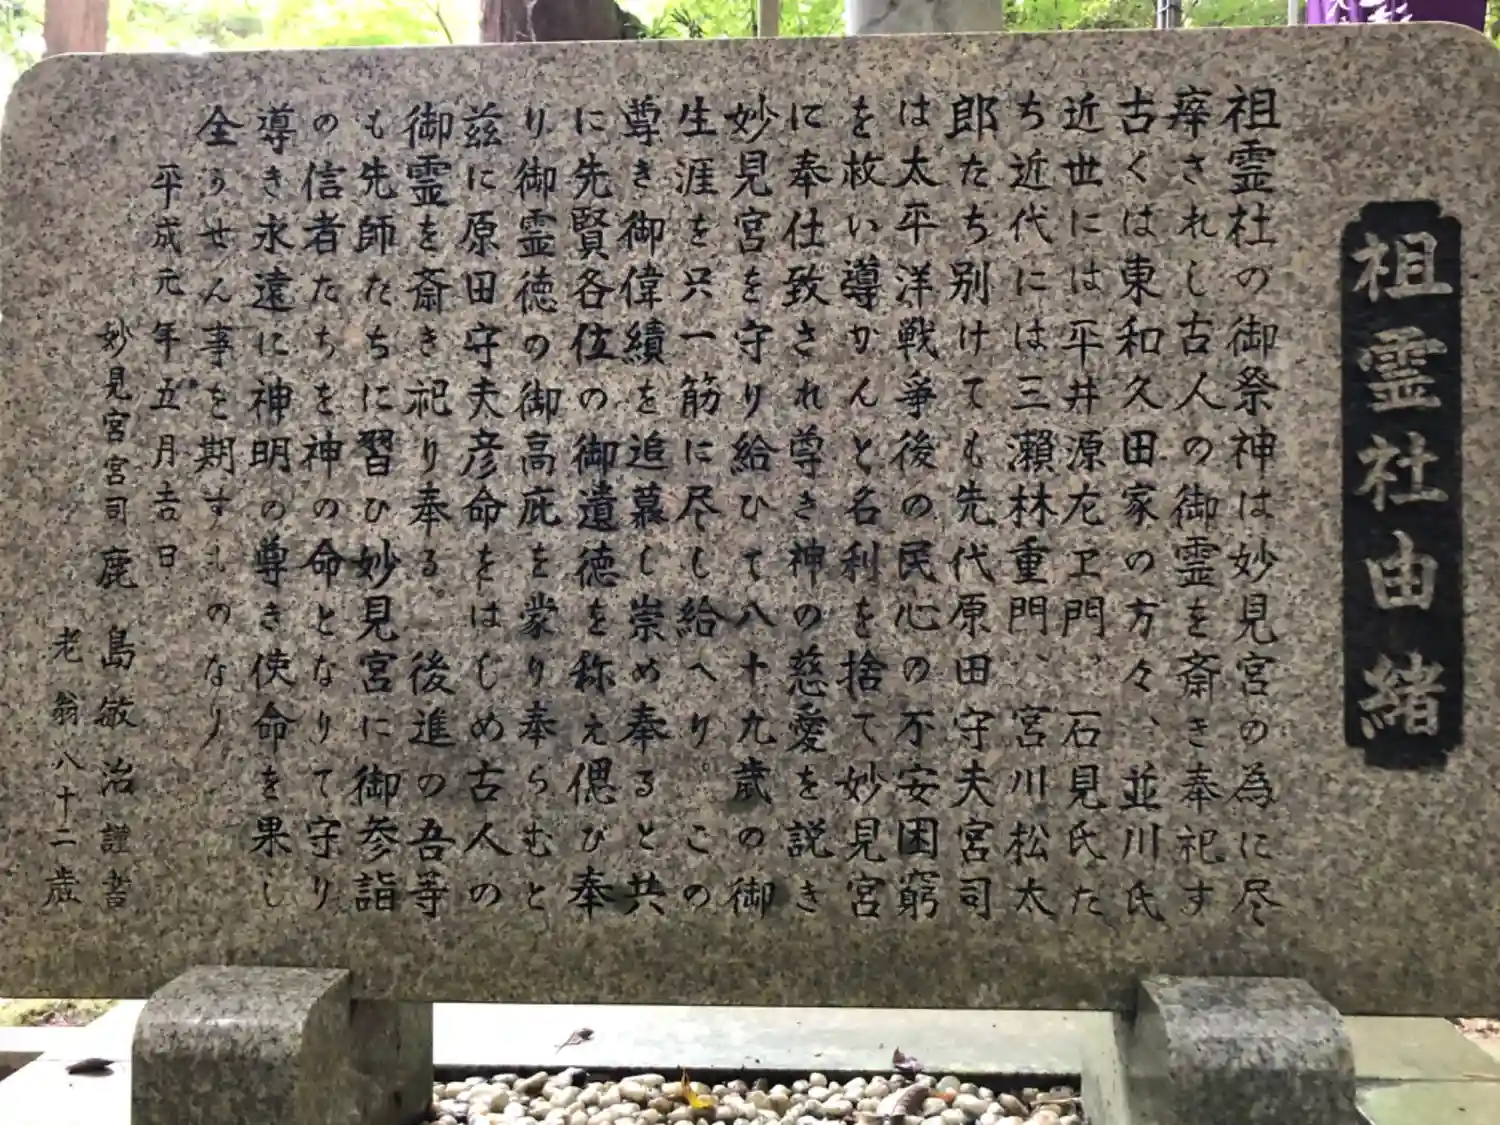 祖霊社由緒
祖霊社の御祭神は妙見宮の為に尽
瘁されし古人の御霊を斎き奉祀す
古くは東和久田家の方々、並川氏
近世には平井源左ヱ門、石見氏た
ち近代には三瀬林重門、宮川松太
郎たち別けても先代原田守夫宮司
は太平洋戦争後の民心の不安困窮
を救い導かんと名利を捨て妙見宮
に奉仕致され尊き神の慈愛を説き
妙見宮を守り給ひて八十九歳の御
生涯を只一筋に尽し給へり。この
尊き御偉績を追慕し崇め奉ると共
に先賢各位の御遺徳を称え偲び奉
り御霊徳の御高庇を蒙り奉らむと
茲に原田守夫彦命をはじめ古人の
御霊を斎き祀り奉る。後進の吾等
も先師たちに習ひ妙見宮に御参詣
の信者たちを神の命となりて守り
導き永遠に神明の尊き使命を果し
全うせん事を期すものなり
平成元年五月吉日
妙見宮宮司鹿島敏治謹書
老翁八十二歳